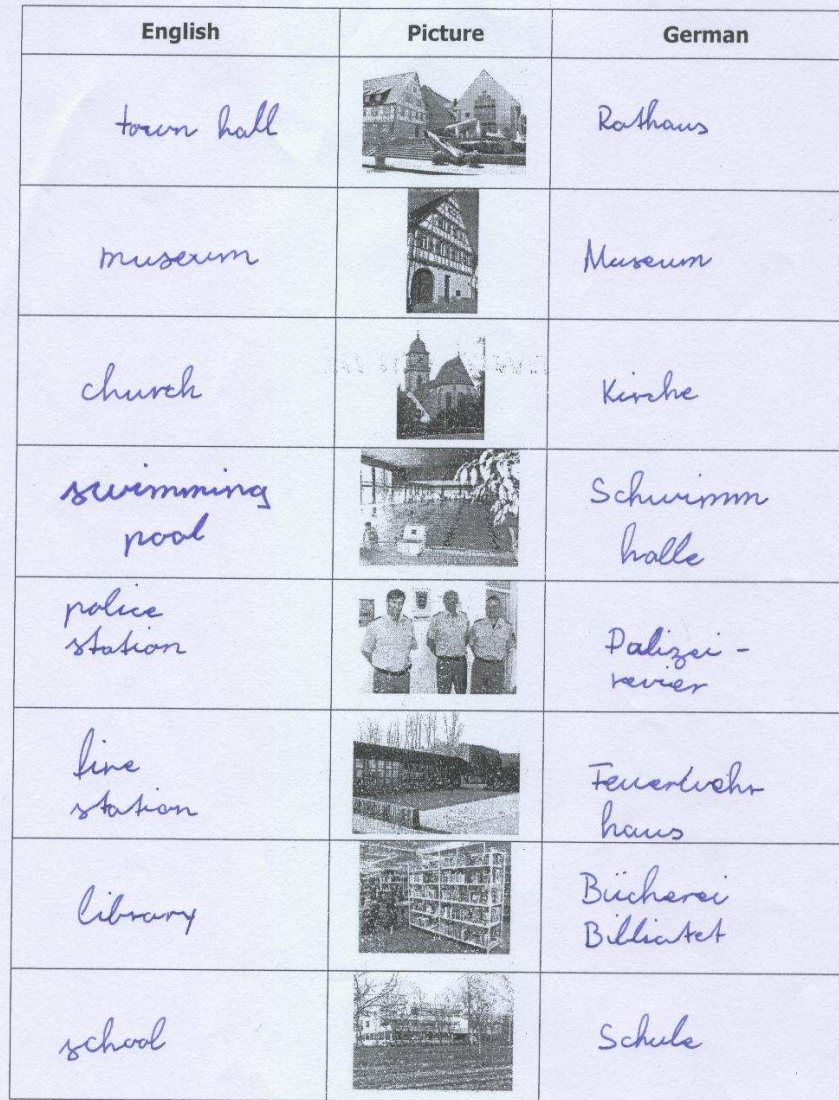 English Picture German
town hall Rathaus
museum Museum
church Kirche
swimming Schwimm
pool halle
police
station Polizei -
revier
fire Feuerwehr
station haus
library Bücherei
school Schule